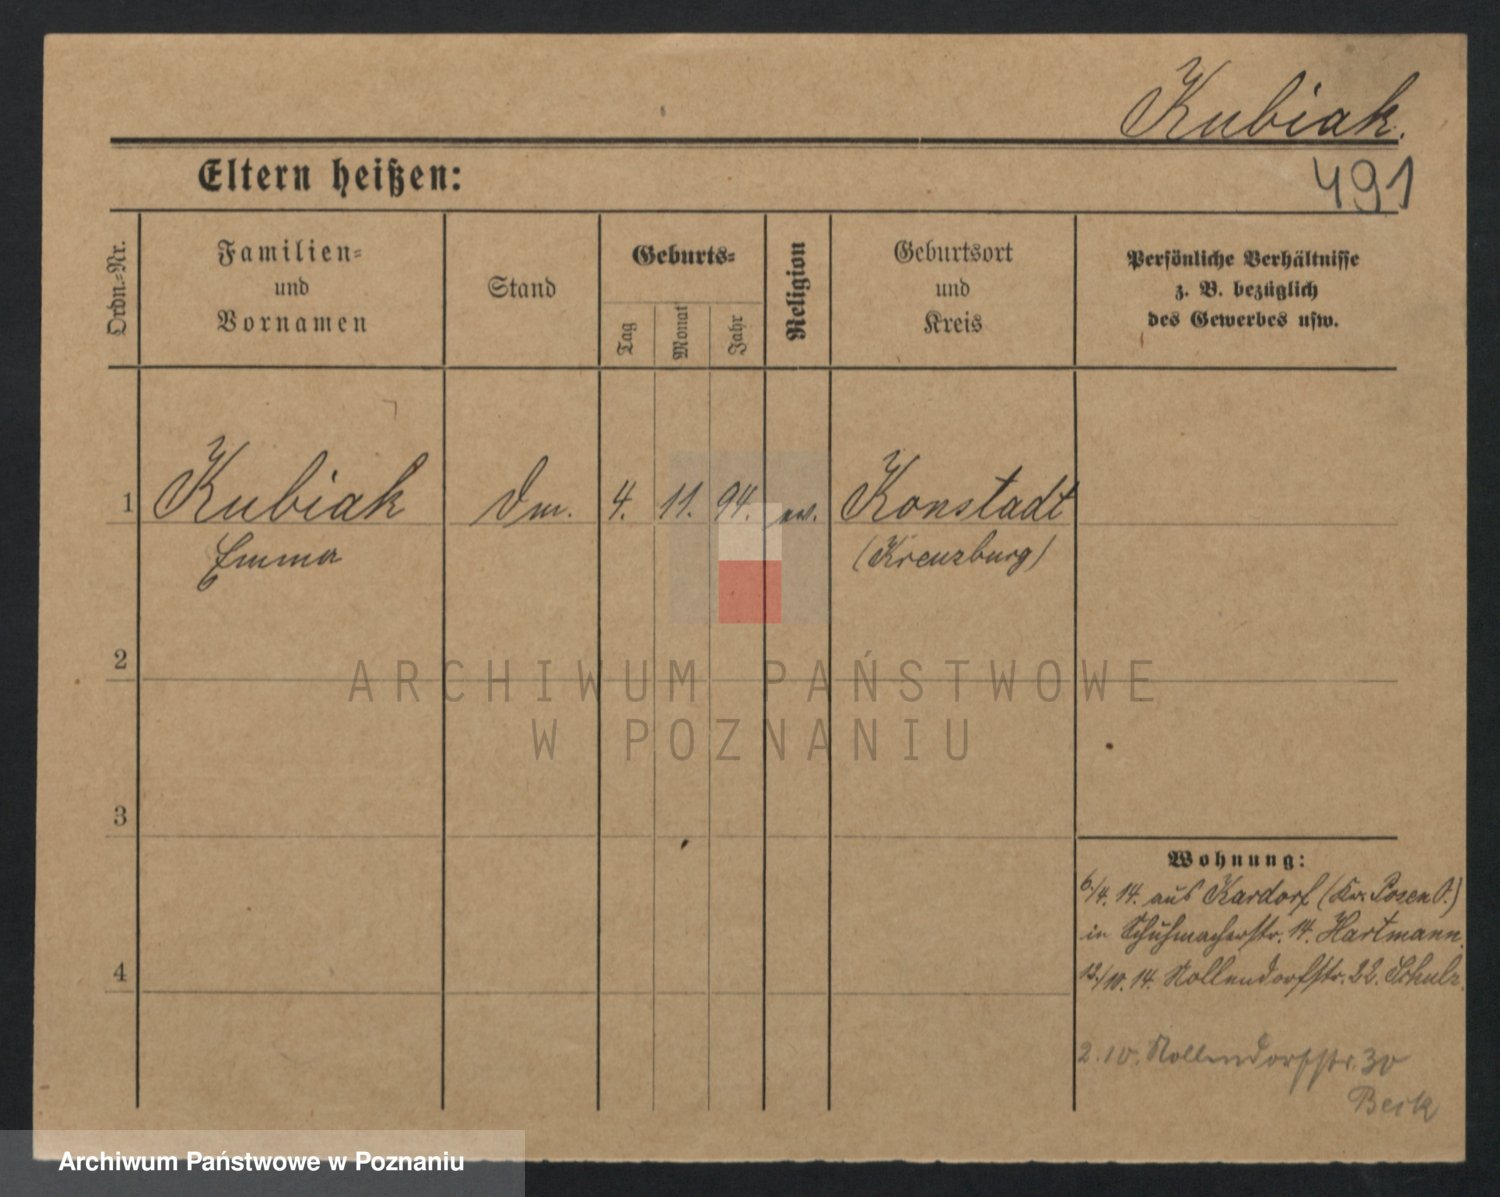 Kubiak.
Eltern heißen:
491
Ordn.-Nr.
Familien-
und
Vornamen
Stand
Geburts-
Tag
Monat
Jahr
Religion
Geburtsort
und
Kreis
Persönliche Verhältnisse
z. B. bezüglich
des Gewerbes usw.
1 Kubiak Dm. 4. 11. 94. ev. Konstadt
Emma (Kreuzburg)
2
ARCHIWUM PAŃSTWOWE
W POZNANIU
3
Wohnung:
6./4. 14. aus Kardorf (Kr. Posen O.)
in Schuhmacherstr. 14. Hartmann.
4
12./10. 14. Nollendorfstr. 22. Schulz.
2. 10. Nollendorfstr. 30
Archiwum Państwowe w Poznaniu